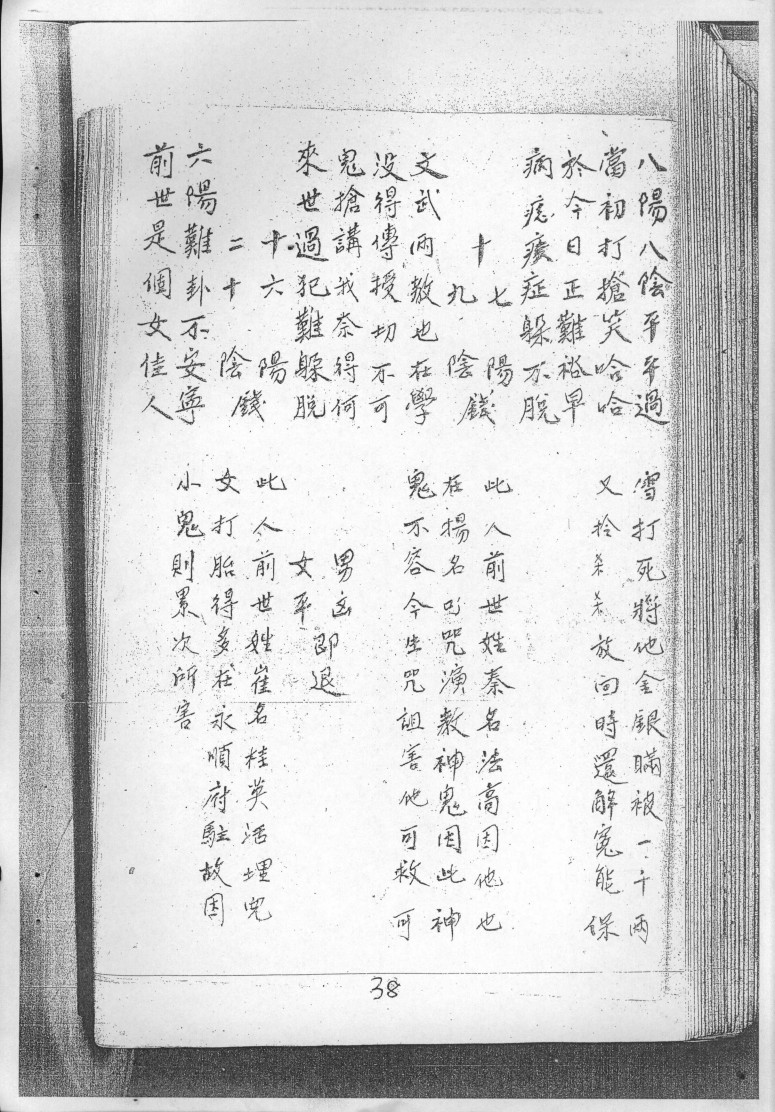 八陽八陰平平過
當初打搶笑哈哈
於今日正難裕早
病痣癀症躲不脫
十七陽
九陰錢
文武兩教也在學
没得傳授切不可
鬼搶講我奈得何
來世過犯難躲脫
十六陽
二十陰錢
六陽難卦不安寧
前世是個女佳人
雪打死將他金銀瞞被一千兩
又拴杀关放回時還解冤能保
此人前世姓秦名法高因他也
在揚名叫咒演教神鬼因此神
鬼不容今生咒詛害他可救可
男凶即退
女平
此人前世姓崔名桂英活埋兒
女打胎得多在永順府駐故因
小鬼則累次所害
38